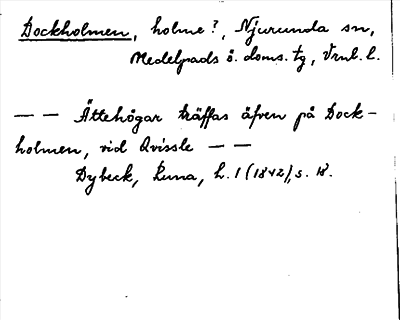 Dockholmen, holme?, Njurunda sn,
Medelpads ö. doms. tg, Vrnl. l.
— — Ättehögar träffas äfven på Dock-
holmen, vid Qvissle — —
Dybeck, Runa, h. 1 (1842), s. 18.